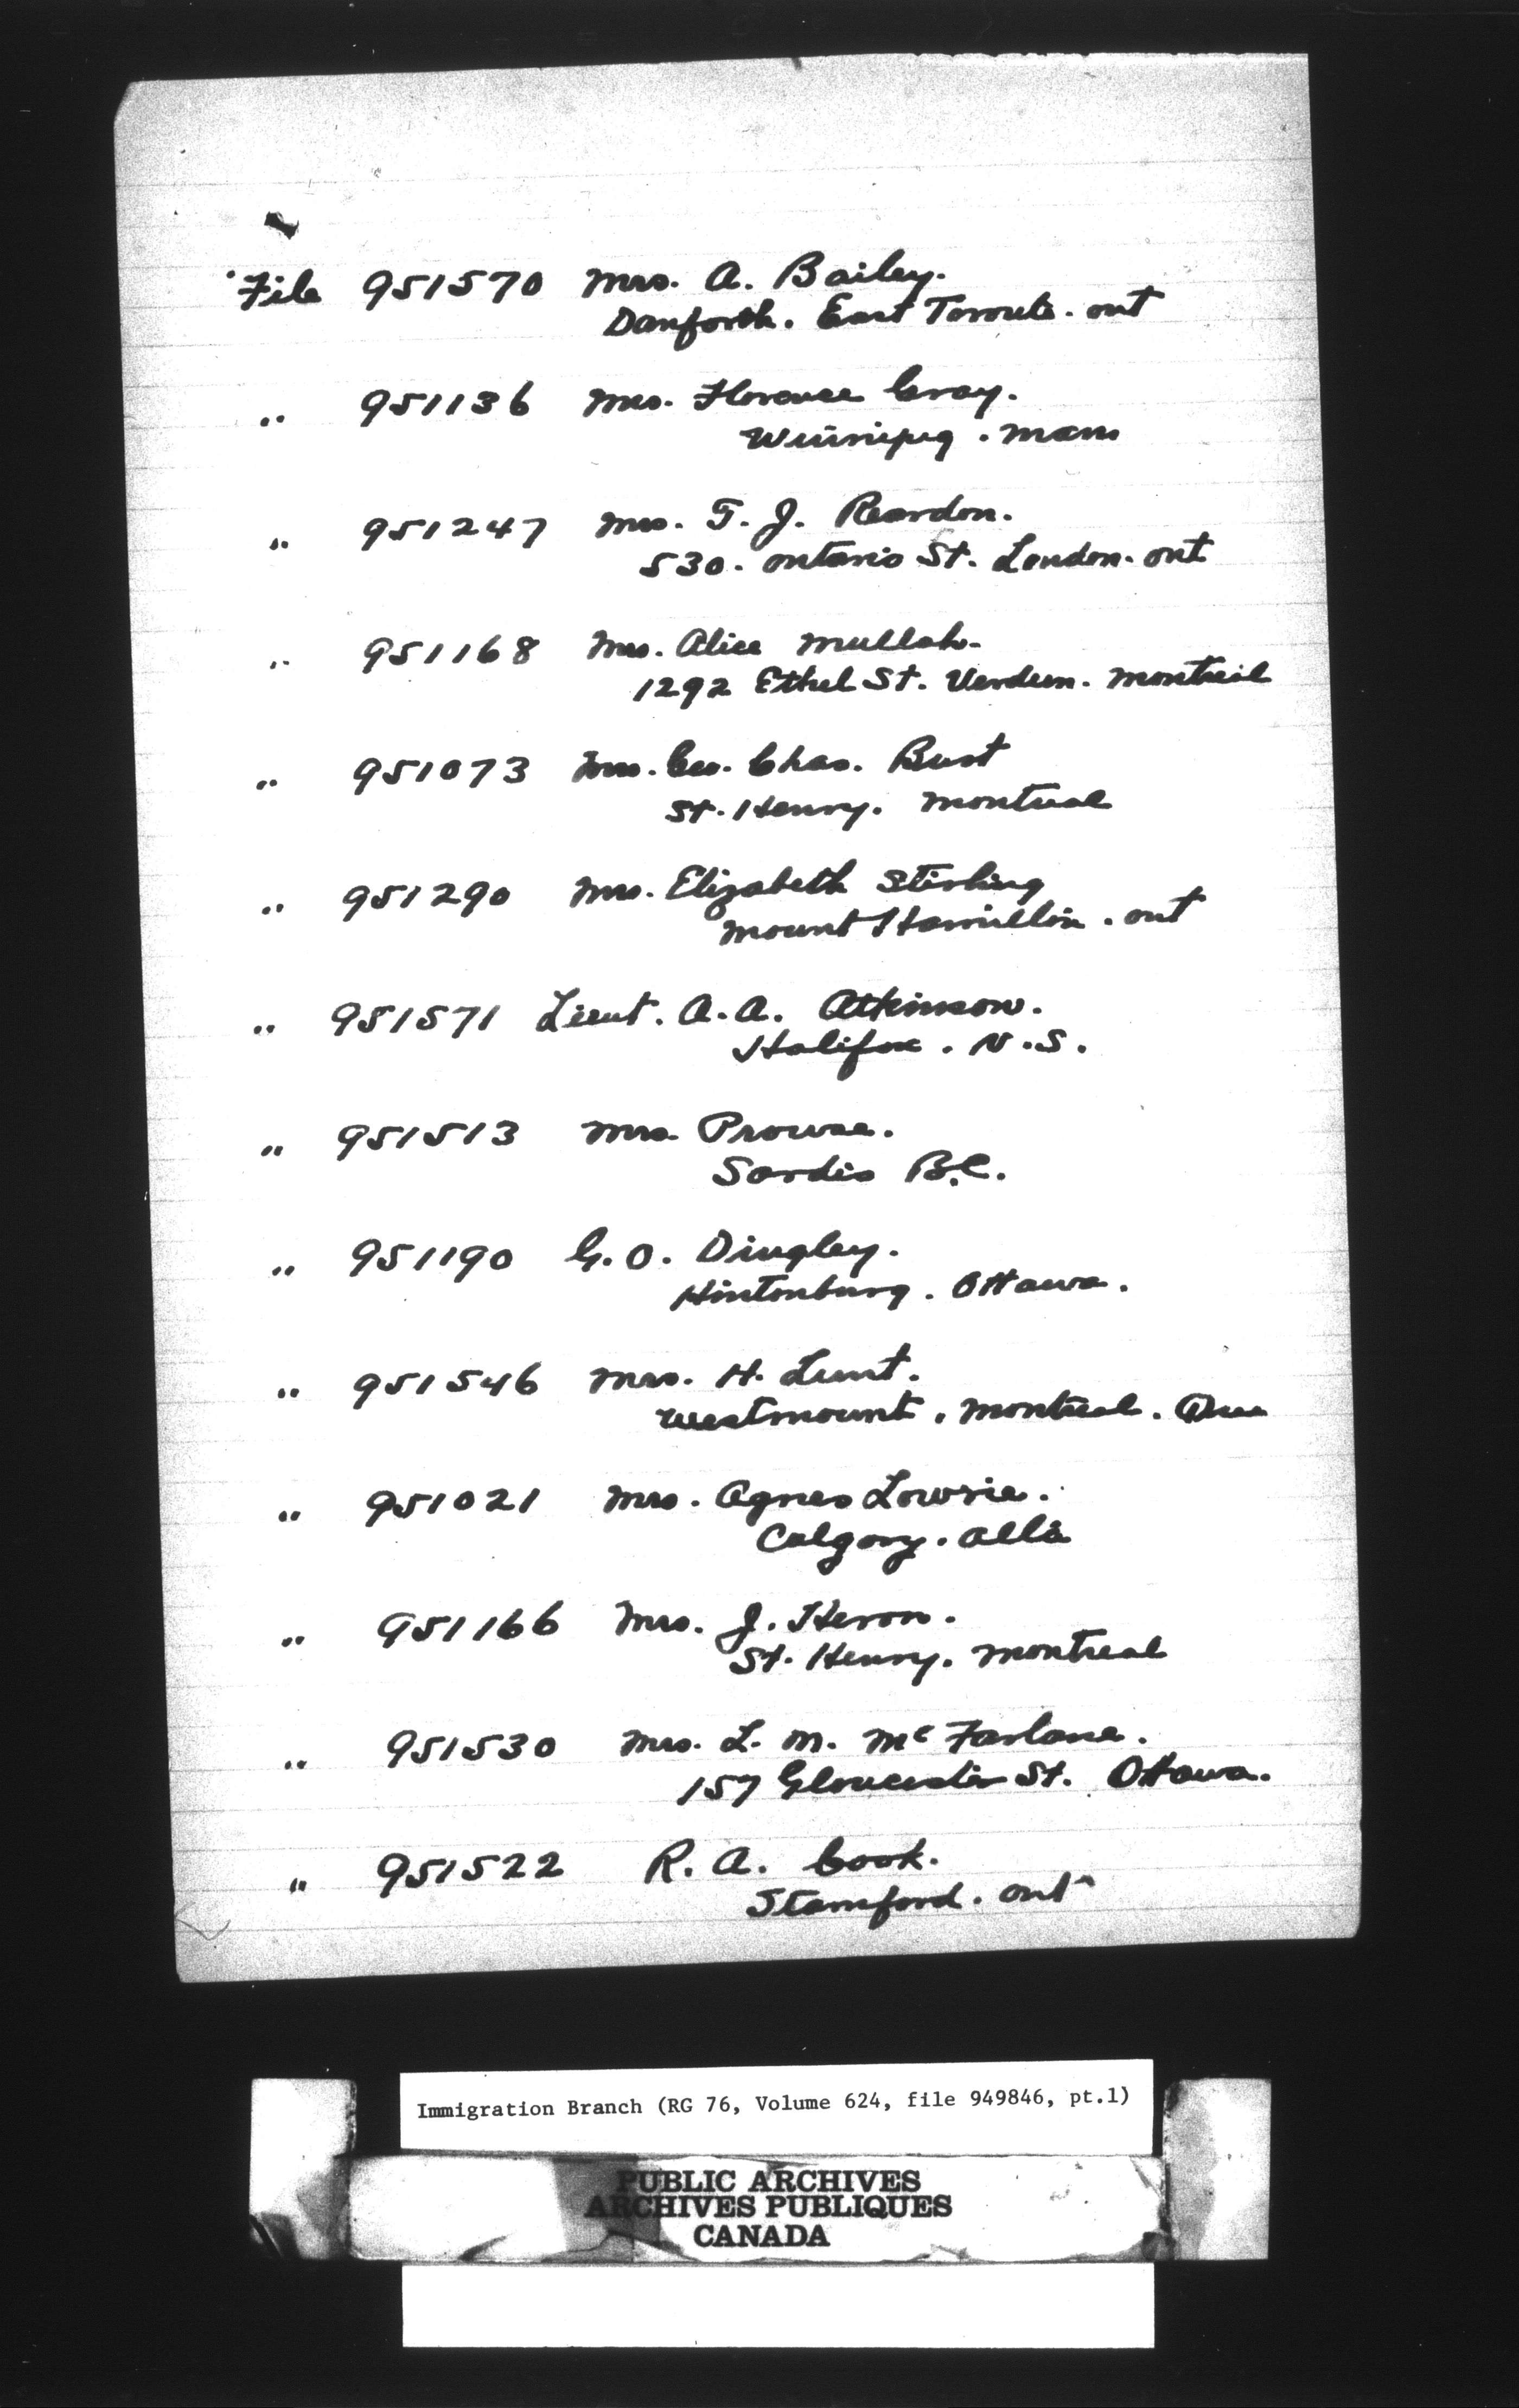 File 951570 Mrs. A. Bailey.
Danforth. East Toronto. Ont
" 951136 Mrs. Florence Gray.
Winnipeg. Man
" 951247 Mrs. T. J. Reardon.
530. Ontario St. London. Ont
" 951168 Mrs. Alice Mullah.
1292 Ethel St. Verdun. Montreal
" 951073 Mrs. Geo. Chas. Bust
St. Henry. Montreal
" 951290 Mrs. Elizabeth Stirling
Mount Hamilton. Ont
" 951571 Lieut. A. A. Atkinson.
Halifax. N.S.
" 951513 Mrs Prowse.
Sardis B.C.
" 951190 G. O. Dingley.
Hintonburg. Ottawa.
" 951546 Mrs. H. Lunt.
Westmount. Montreal. Que
" 951021 Mrs. Agnes Lowrie.
Calgary. Alta
" 951166 Mrs. J. Heron.
St. Henry. Montreal
" 951530 Mrs. L. M. McFarlane.
157 Gloucester St. Ottawa.
" 951522 R. A. Cook.
Stamford. Ont
Immigration Branch (RG 76, Volume 624, file 949846, pt.1)
PUBLIC ARCHIVES
ARCHIVES PUBLIQUES
CANADA